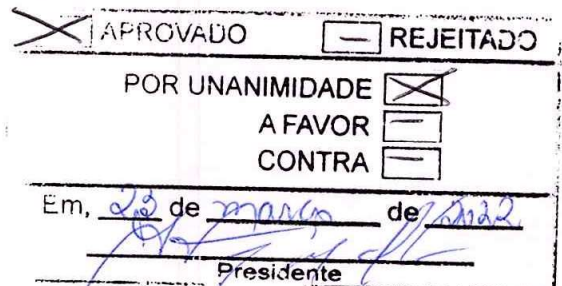 APROVADO — REJEITADO
POR UNANIMIDADE
A FAVOR —
CONTRA —
Em, de março de 2022
Presidente